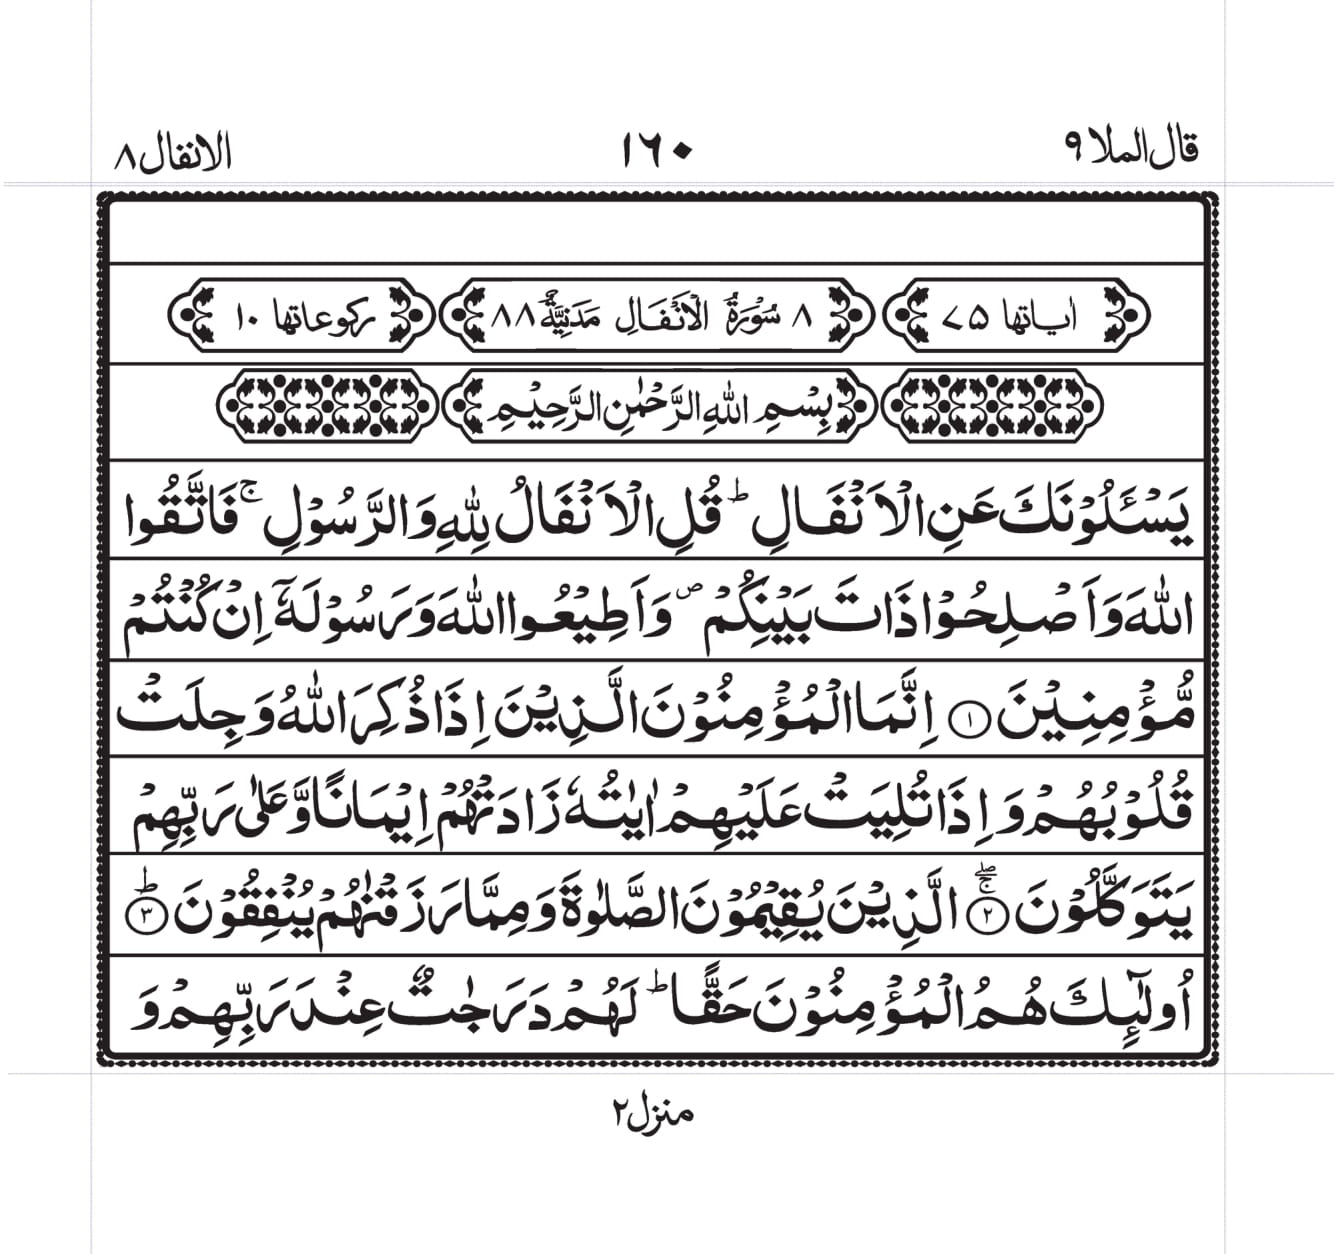 قال الملا ٩ ١٦٠ الانفال ٨
اٰیاتها ٧٥ ٨ سُوۡرَةُ الۡاَنۡفَالِ مَدَنِیَّةٌ ٨٨ رکوعاتها ١٠
بِسۡمِ اللهِ الرَّحۡمٰنِ الرَّحِیۡمِ
یَسۡـَٔلُوۡنَكَ عَنِ الۡاَنۡفَالِ ؕ قُلِ الۡاَنۡفَالُ لِلّٰهِ وَ الرَّسُوۡلِ ۚ فَاتَّقُوا
اللهَ وَ اَصۡلِحُوۡا ذَاتَ بَیۡنِكُمۡ ۪ وَ اَطِیۡعُوا اللهَ وَ رَسُوۡلَهٗۤ اِنۡ كُنۡتُمۡ
مُّؤۡمِنِیۡنَ ﴿١﴾ اِنَّمَا الۡمُؤۡمِنُوۡنَ الَّذِیۡنَ اِذَا ذُكِرَ اللهُ وَجِلَتۡ
قُلُوۡبُهُمۡ وَ اِذَا تُلِیَتۡ عَلَیۡهِمۡ اٰیٰتُهٗ زَادَتۡهُمۡ اِیۡمَانًا وَّ عَلٰی رَبِّهِمۡ
یَتَوَكَّلُوۡنَ ﴿٢﴾ۚۖ الَّذِیۡنَ یُقِیۡمُوۡنَ الصَّلٰوةَ وَ مِمَّا رَزَقۡنٰهُمۡ یُنۡفِقُوۡنَ ﴿٣﴾ؕ
اُولٰٓئِكَ هُمُ الۡمُؤۡمِنُوۡنَ حَقًّا ؕ لَهُمۡ دَرَجٰتٌ عِنۡدَ رَبِّهِمۡ وَ
منزل ٢